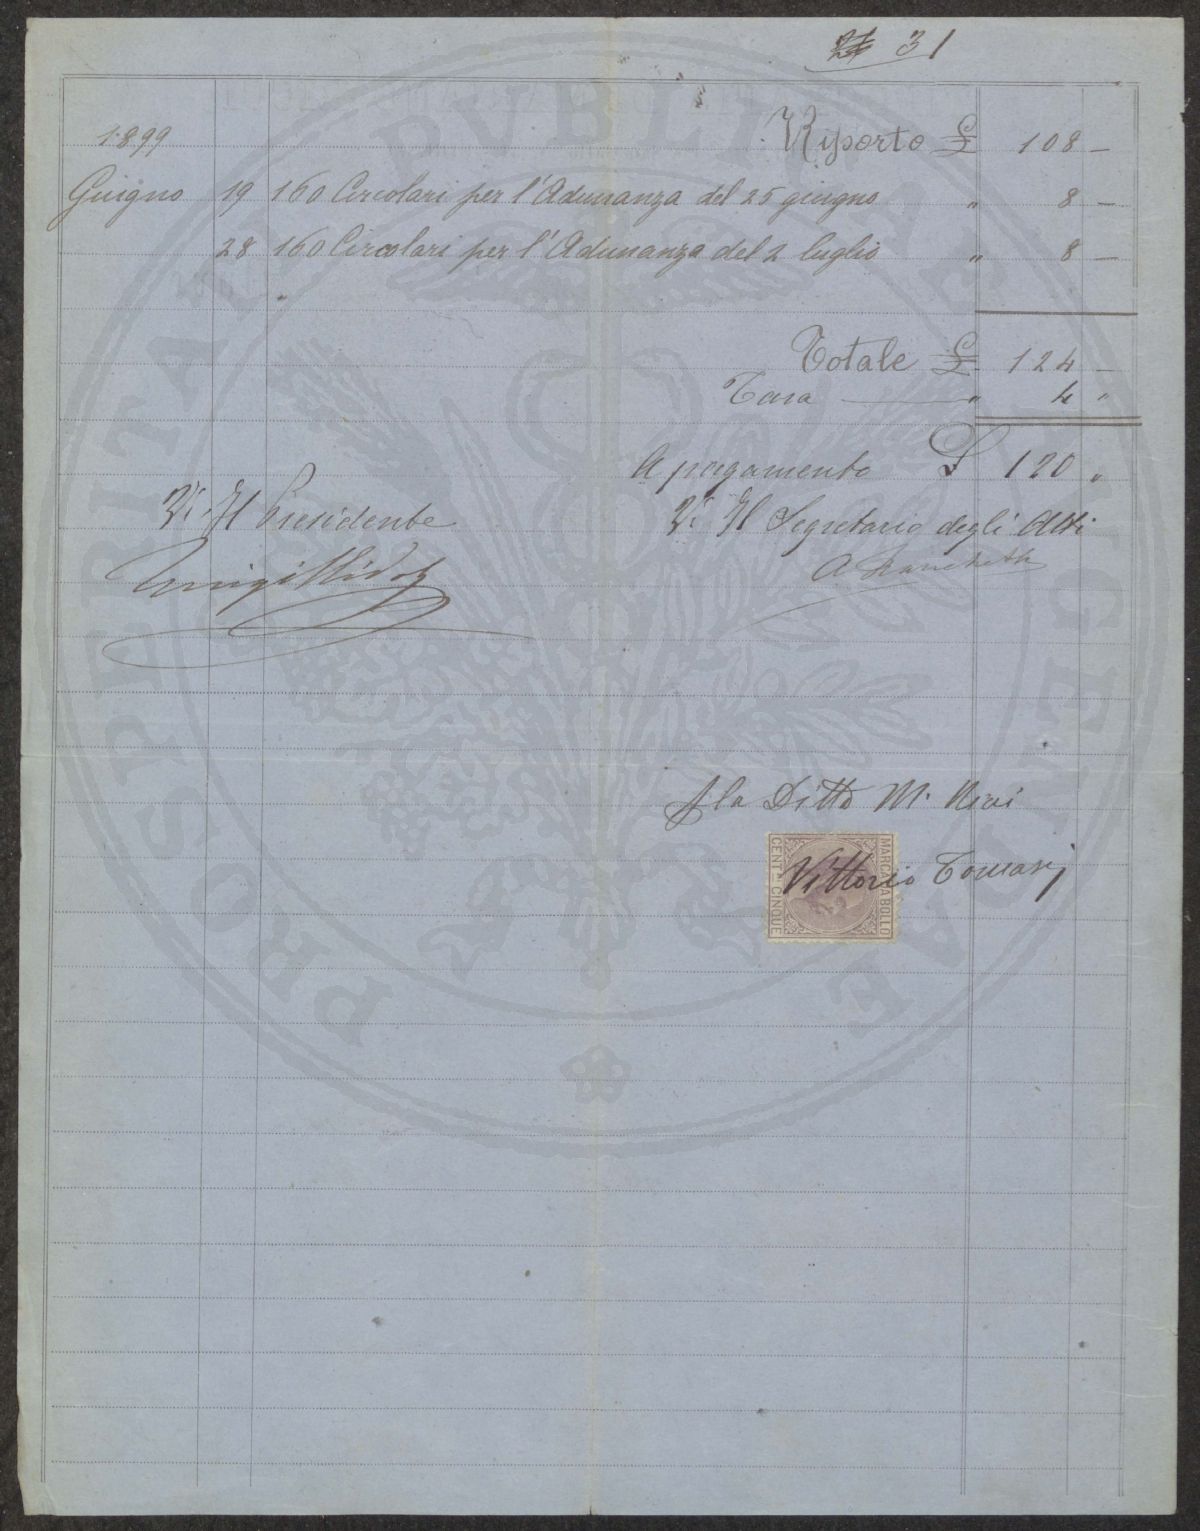 31
1899 Riporto £ 108 —
Guigno 19 160 Circolari per l'Adunanza del 25 giugno " 8 —
28 160 Circolari per l'Adunanza del 2 luglio " 8 —
Totale £ 124 —
Tara " 4 "
A pagamento £ 120 "
Vi Il Presidente
Vi Il Segretario degli Atti
p la Ditta M.
MARCA DA BOLLO
CENT. CINQUE
Vittorio Tomasi
PROSPERITATI PVBLICAE AVGENDAE